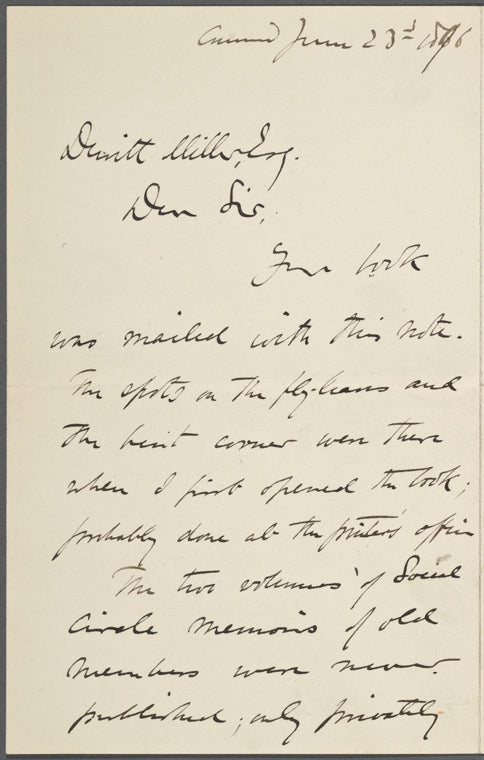 Concord June 23d 1896
Dewitt Miller, Esq.
Dear Sir,
Your book
was mailed with this note.
The spots on the fly-leaves and
the bent corner were there
when I first opened the book;
probably done at the printers' office
The two volumes of Social
Circle memoirs of old
members were never
published; only privately